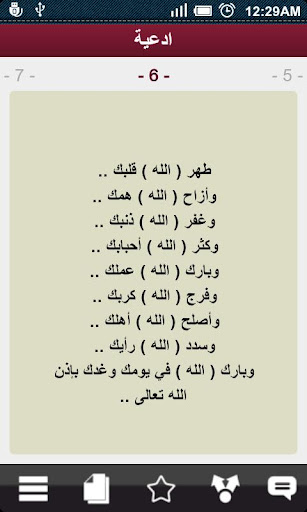 12:29AM
ادعية
- 7 -
- 6 -
- 5 -
طهر ( الله ) قلبك ..
وأزاح ( الله ) همك ..
وغفر ( الله ) ذنبك ..
وكثر ( الله ) أحبابك ..
وبارك ( الله ) عملك ..
وفرج ( الله ) كربك ..
وأصلح ( الله ) أهلك ..
وسدد ( الله ) رأيك ..
وبارك ( الله ) في يومك وغدك بإذن
الله تعالى ..